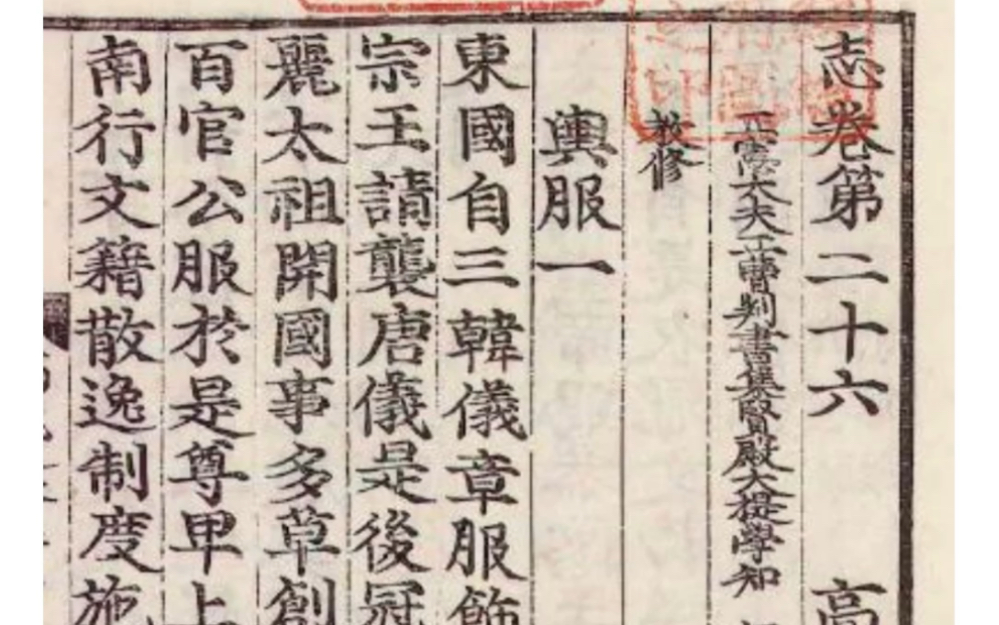 志卷第二十六 高
正憲大夫工曹判書集賢殿大提學知
教修
輿服一
東國自三韓儀章服飾
宗王請襲唐儀是後冠
麗太祖開國事多草創
百官公服於是尊卑上
南行文籍散逸制度施